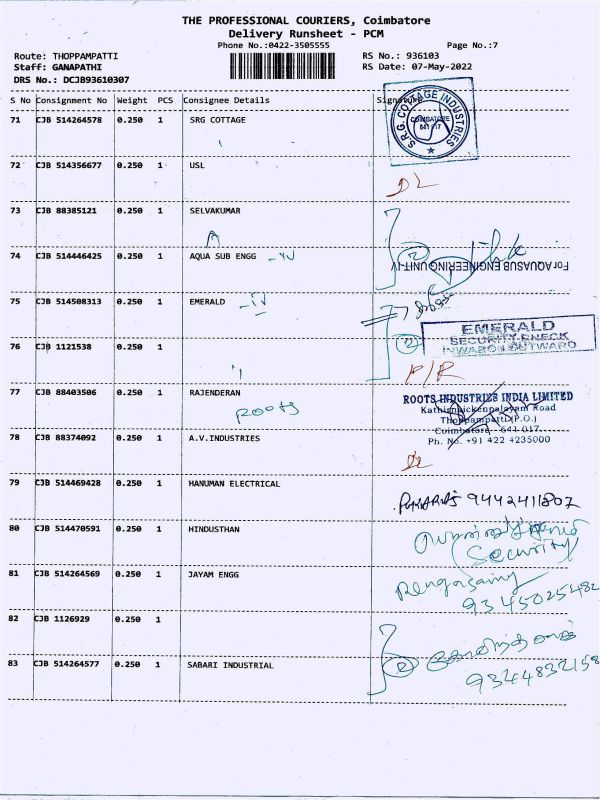 THE PROFESSIONAL COURIERS, Coimbatore
Delivery Runsheet - PCM
Phone No.:0422-3505555 Page No.:7
Route: THOPPAMPATTI RS No.: 936103
Staff: GANAPATHI RS Date: 07-May-2022
DRS No.: DCJB93610307
S No Consignment No Weight PCS Consignee Details Signature
S.R.G. COTTAGE INDUSTRIES
COIMBATORE
641 017
71 CJB 514264578 0.250 1 SRG COTTAGE
72 CJB 514356677 0.250 1 USL
DL
73 CJB 88385121 0.250 1 SELVAKUMAR
74 CJB 514446425 0.250 1 AQUA SUB ENGG - IV
2
For AQUASUB ENGINEERING UNIT-IV
75 CJB 514508313 0.250 1 EMERALD - IV
EMERALD
SECURITY CHECK
INWARD / OUTWARD
76 CJB 1121538 0.250 1 "
2
P/R
77 CJB 88403506 0.250 1 RAJENDERAN
ROOTS
ROOTS INDUSTRIES INDIA LIMITED
Kathirnaickenpalayam Road
Thoppampatti (P.O.)
Coimbatore - 641 017
Ph. No. +91 422 4235000
78 CJB 88374092 0.250 1 A.V.INDUSTRIES
DL
79 CJB 514469428 0.250 1 HANUMAN ELECTRICAL
9442411807
80 CJB 514470591 0.250 1 HINDUSTHAN
(Security
81 CJB 514264569 0.250 1 JAYAM ENGG
Rengasamy
9345025482
82 CJB 1126929 0.250 1
2
83 CJB 514264577 0.250 1 SABARI INDUSTRIAL
9344832158